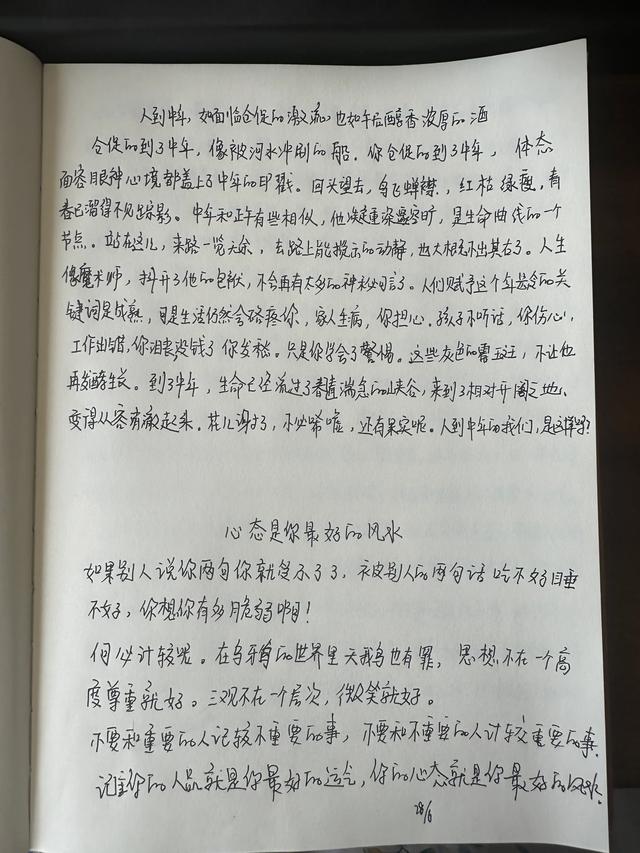 人到中年，如面临仓促的激流，也如午后醇香浓厚的酒
仓促的到了中年，像被河水冲刷的船。你仓促的到了中年，体态
面容眼神心境都盖上了中年的印戳。回头望去，乌飞蝉噤，红枯绿瘦，青
春已溜得不见踪影。中年和正午有些相似，他凝重深邃空旷，是生命曲线的一个
节点。站在这儿，来路一览无余，去路上能揽示的动静，也大相不出其右了。人生
像魔术师，抖开了他的包袱，不会再有太多的神秘可言了。人们赋予这个年龄的关
键词是成熟，可是生活仍然会硌疼你，家人生病，你担心。孩子不听话，你伤心，
工作出错，你沮丧没钱了你发愁。只是你学会了警惕。这些灰色的霉斑，不让他
再发酵生长。到了中年，生命已经流过了喘息的峡谷，来到了相对开阔之地、
变得从容有澈起来。花儿谢了，不必唏嘘，还有果实呢。人到中年的我们，是这样吗？
心态是你最好的风水
如果别人说你两句你就受不了了，被别人的两句话吃不好睡
不好，你想你有多脆弱啊！
何必计较呢。在乌鸦的世界里天鹅也有罪，思想不在一个高
度尊重就好。三观不在一个层次，微笑就好。
不要和重要的人计较不重要的事，不要和不重要的人计较重要的事
记住你的人品就是你最好的运气，你的心态就是你最好的风水。
28/6